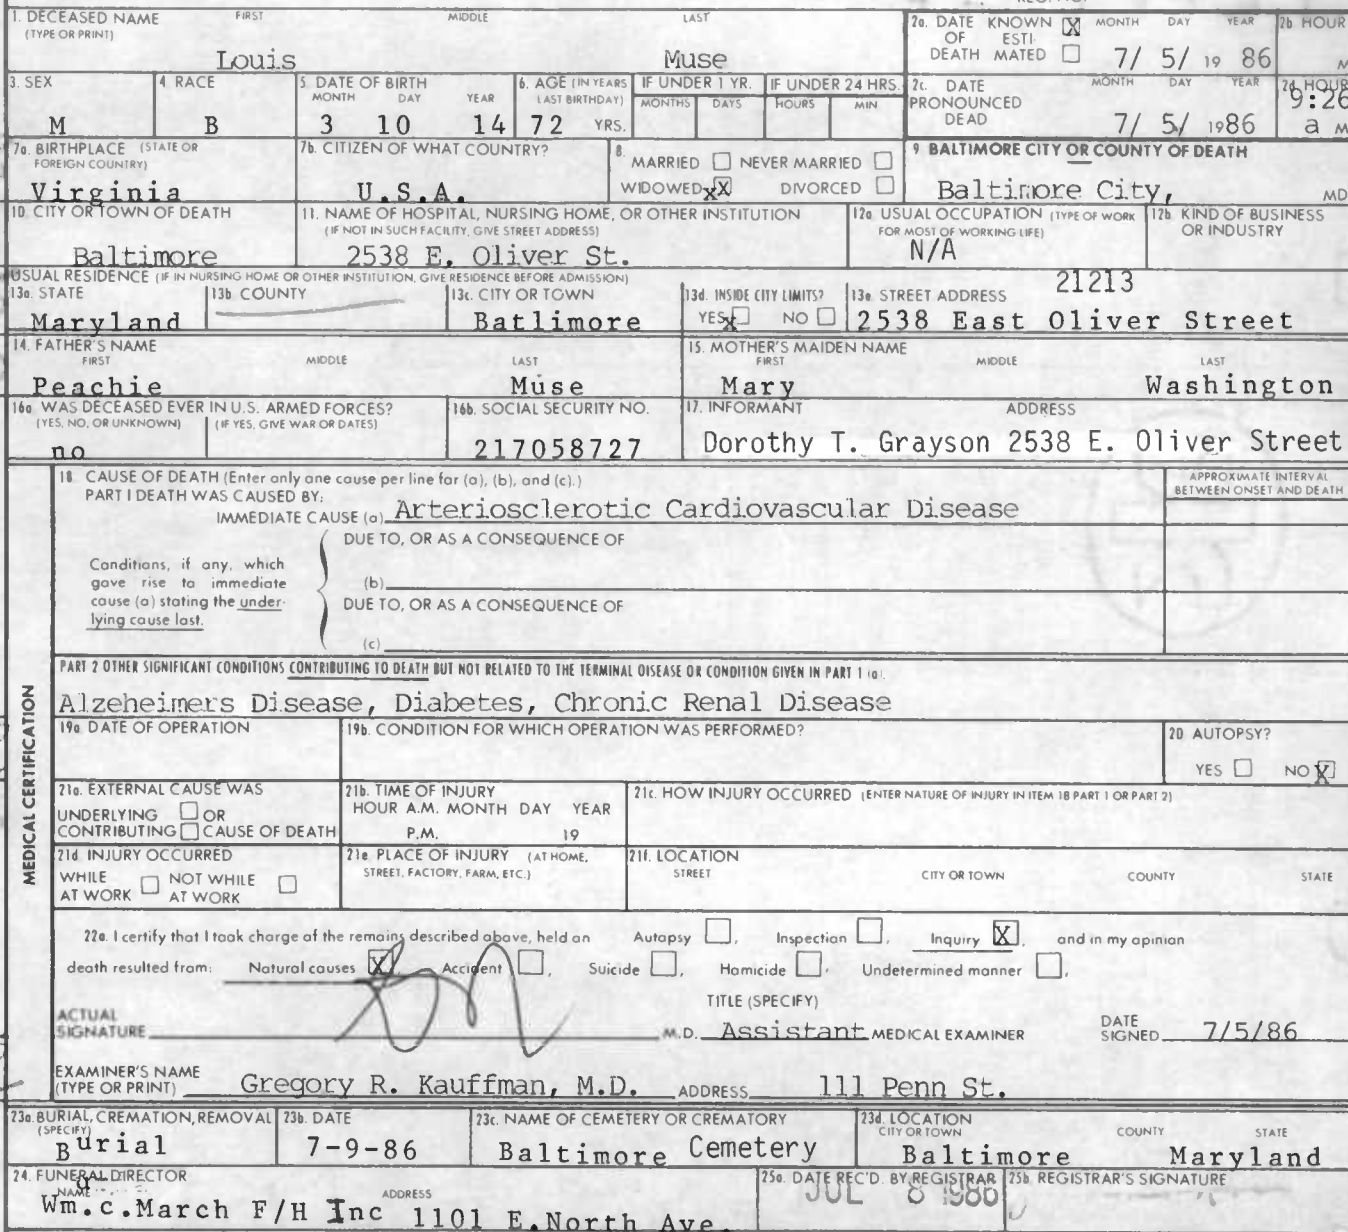 1. DECEASED NAME FIRST MIDDLE LAST
(TYPE OR PRINT)
Louis Muse
2a. DATE KNOWN X MONTH DAY YEAR 2b HOUR
OF ESTI-
DEATH MATED 7/ 5/ 19 86 M
3. SEX 4. RACE 5. DATE OF BIRTH 6. AGE (IN YEARS IF UNDER 1 YR. IF UNDER 24 HRS.
MONTH DAY YEAR LAST BIRTHDAY) MONTHS DAYS HOURS MIN
M B 3 10 14 72 YRS.
2c. DATE MONTH DAY YEAR 2d HOUR
PRONOUNCED 9:26
DEAD 7/ 5/ 1986 a M
7a. BIRTHPLACE (STATE OR
FOREIGN COUNTRY)
Virginia
7b. CITIZEN OF WHAT COUNTRY?
U.S.A.
8. MARRIED NEVER MARRIED
WIDOWED xX DIVORCED
9. BALTIMORE CITY OR COUNTY OF DEATH
Baltimore City, MD
10. CITY OR TOWN OF DEATH
Baltimore
11. NAME OF HOSPITAL, NURSING HOME, OR OTHER INSTITUTION
(IF NOT IN SUCH FACILITY, GIVE STREET ADDRESS)
2538 E. Oliver St.
12a. USUAL OCCUPATION (TYPE OF WORK
FOR MOST OF WORKING LIFE)
N/A
12b. KIND OF BUSINESS
OR INDUSTRY
USUAL RESIDENCE (IF IN NURSING HOME OR OTHER INSTITUTION, GIVE RESIDENCE BEFORE ADMISSION)
13a. STATE 13b. COUNTY 13c. CITY OR TOWN 13d. INSIDE CITY LIMITS? 13e. STREET ADDRESS 21213
Maryland Batlimore YES x NO 2538 East Oliver Street
14. FATHER'S NAME
FIRST MIDDLE LAST
Peachie Muse
15. MOTHER'S MAIDEN NAME
FIRST MIDDLE LAST
Mary Washington
16a. WAS DECEASED EVER IN U.S. ARMED FORCES?
(YES, NO, OR UNKNOWN) (IF YES, GIVE WAR OR DATES)
no
16b. SOCIAL SECURITY NO.
217058727
17. INFORMANT ADDRESS
Dorothy T. Grayson 2538 E. Oliver Street
18. CAUSE OF DEATH (Enter only one cause per line for (a), (b), and (c).)
PART I DEATH WAS CAUSED BY:
IMMEDIATE CAUSE (a) Arteriosclerotic Cardiovascular Disease
APPROXIMATE INTERVAL
BETWEEN ONSET AND DEATH
DUE TO, OR AS A CONSEQUENCE OF
Conditions, if any, which
gave rise to immediate (b)
cause (a) stating the under- DUE TO, OR AS A CONSEQUENCE OF
lying cause last.
(c)
PART 2 OTHER SIGNIFICANT CONDITIONS CONTRIBUTING TO DEATH BUT NOT RELATED TO THE TERMINAL DISEASE OR CONDITION GIVEN IN PART 1 (a).
Alzeheimers Disease, Diabetes, Chronic Renal Disease
MEDICAL CERTIFICATION
19a. DATE OF OPERATION 19b. CONDITION FOR WHICH OPERATION WAS PERFORMED? 20. AUTOPSY?
YES NO X
21a. EXTERNAL CAUSE WAS
UNDERLYING OR
CONTRIBUTING CAUSE OF DEATH
21b. TIME OF INJURY
HOUR A.M. MONTH DAY YEAR
P.M. 19
21c. HOW INJURY OCCURRED (ENTER NATURE OF INJURY IN ITEM 18 PART 1 OR PART 2)
21d. INJURY OCCURRED
WHILE NOT WHILE
AT WORK AT WORK
21e. PLACE OF INJURY (AT HOME,
STREET, FACTORY, FARM, ETC.)
21f. LOCATION
STREET CITY OR TOWN COUNTY STATE
22a. I certify that I took charge of the remains described above, held an Autopsy , Inspection , Inquiry X , and in my opinion
death resulted from: Natural causes X Accident , Suicide , Homicide , Undetermined manner .
TITLE (SPECIFY)
ACTUAL
SIGNATURE M.D. Assistant MEDICAL EXAMINER DATE
SIGNED 7/5/86
EXAMINER'S NAME
(TYPE OR PRINT) Gregory R. Kauffman, M.D. ADDRESS 111 Penn St.
23a. BURIAL, CREMATION, REMOVAL
(SPECIFY)
Burial
23b. DATE
7-9-86
23c. NAME OF CEMETERY OR CREMATORY
Baltimore Cemetery
23d. LOCATION
CITY OR TOWN COUNTY STATE
Baltimore Maryland
24. FUNERAL DIRECTOR
NAME ADDRESS
Wm.c.March F/H Inc 1101 E.North Ave.
25a. DATE REC'D. BY REGISTRAR
JUL 8 1986
25b. REGISTRAR'S SIGNATURE